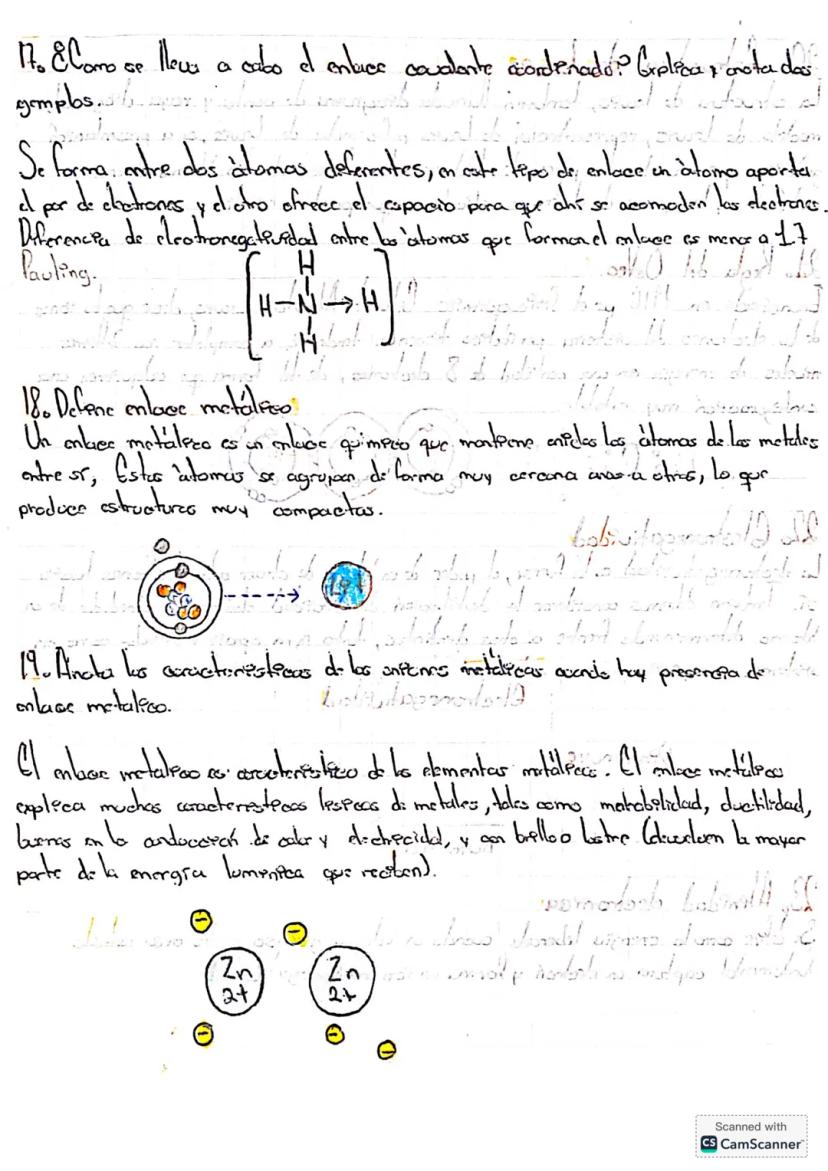 17. ¿Como se lleva a cabo el enlace covalante coordinado? Explica y anota dos
ejemplos.
Se forma entre dos átomos deferentes, en este tipo de enlace un átomo aporta
el par de electrones y el otro ofrece el espacio para que ahí se acomoden las electrones.
Diferencia de electronegatividad entre los átomos que forman el enlace es menor a 1.7
Pauling.
H
H-N→H
H
18. Define enlace metálico
Un enlace metálico es un enlace químico que mantiene unidos los átomos de los metales
entre sí, Estos átomos se agrupan de forma muy cercana unos a otros, lo que
produce estructuras muy compactas.
19. Anota las características de las uniones metálicas cuando hay presencia de
enlace metalico.
El enlace metalico es característico de los elementos metálicos. El enlace metálico
explica muchas características de metales, tales como maleabilidad, ductilidad,
buenos en la conducción de calor y electrecidad, y con brillo o lustre (devuelven la mayor
parte de la energía lumínica que reciben).
Zn Zn
2+ 2+
Scanned with
CS CamScanner